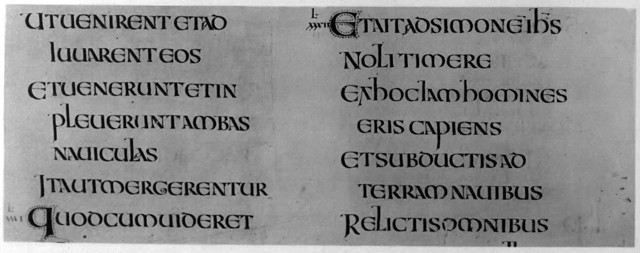 UTUENIRENT ET AD
IUUARENT EOS
ET UENERUNT ET IN
PLEUERUNT AMBAS
NAUICULAS
ITA UT MERGERENTUR
QUOD CUM UIDERET
ET AIT AD SIMONĒ IH̅S
NOLI TIMERE
EX HOC IAM HOMINES
ERIS CAPIENS
ET SUBDUCTIS AD
TERRAM NAUIBUS
RELICTIS OMNIBUS